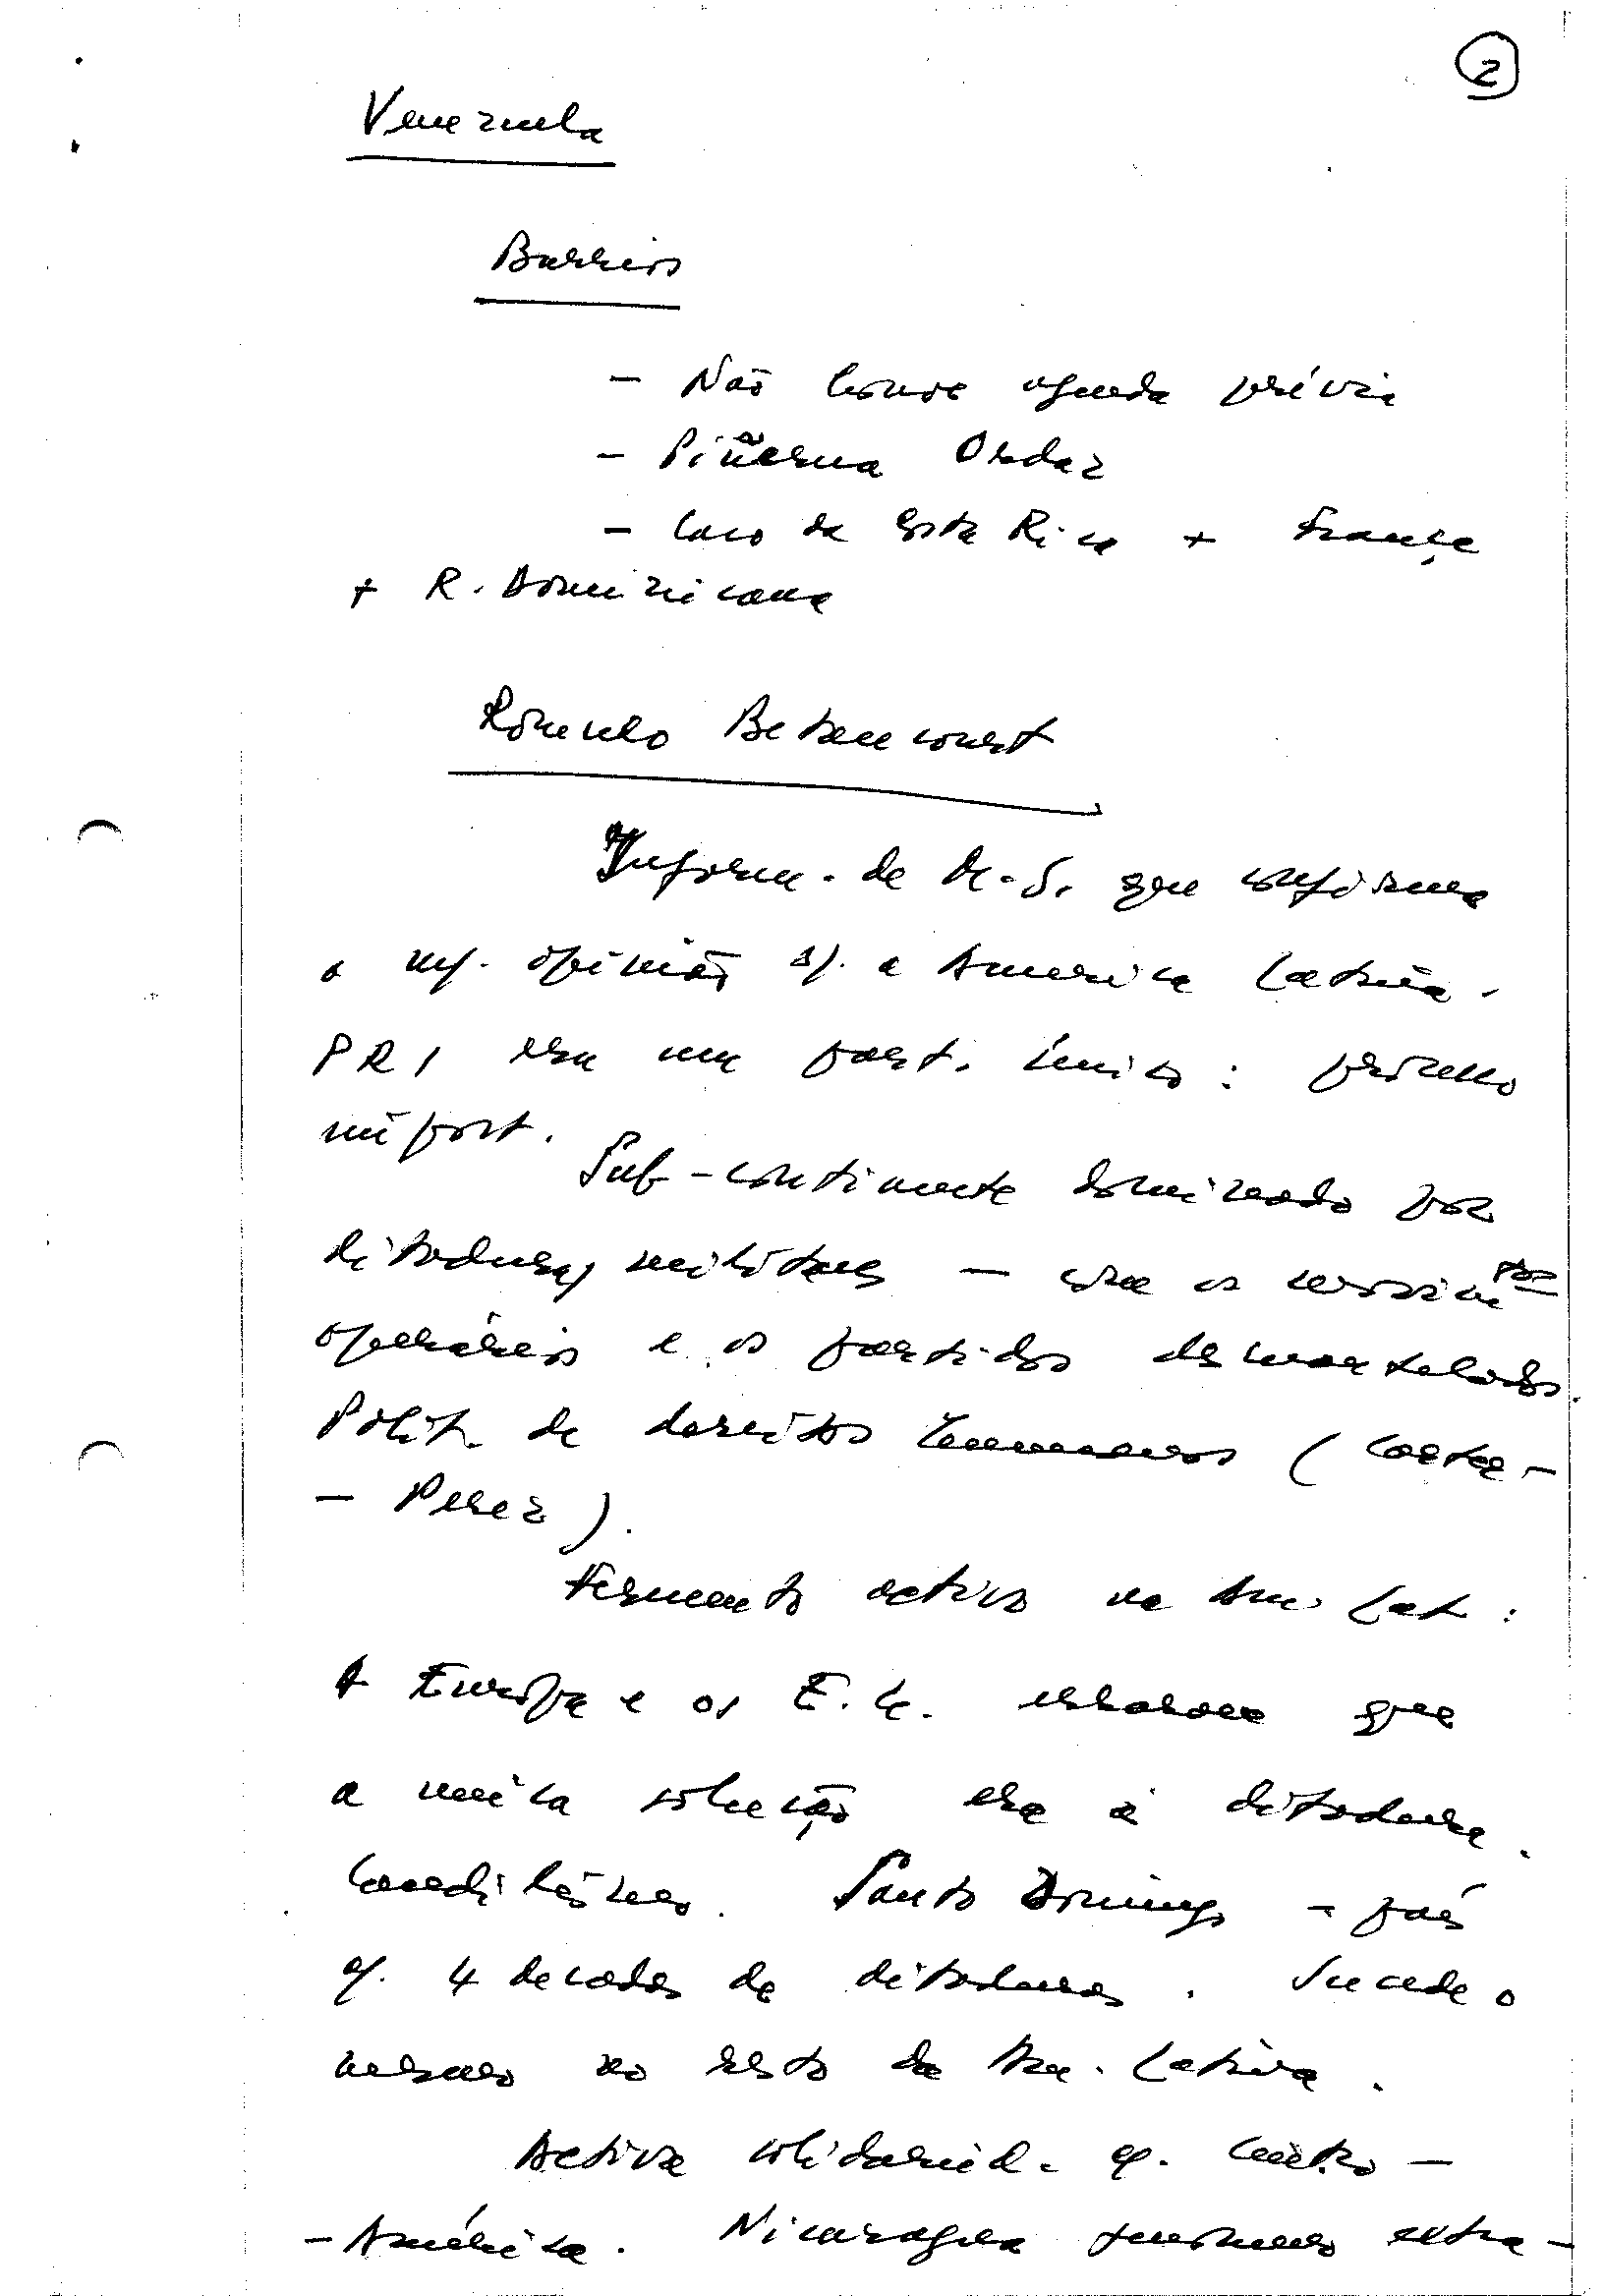 2
Venezuela
Barrios
- Não houve agenda prévia
- Piñerua Ordaz
- Caso da Costa Rica + França
+ R. Dominicana
Rómulo Betencourt
Inform. de M. S. que confirma
a m/. opinião s/. a America Latina.
PRI era um part. único: processo
import.
Sub-continente dominado por
ditaduras militares - com os
operários e os partidos desmantelados.
Polit. de direitos humanos (Carter-
- Perez).
Fermento activo na Am. Lat:
A Europa e os E. U. erraram que
a unica solução era a ditadura.
Santo Domingo - país
c/. 4 decadas de ditadura. Sucede o
mesmo no resto da Am. Latina.
Activa solidaried. c/. Centro-
- América. Nicaragua extra-